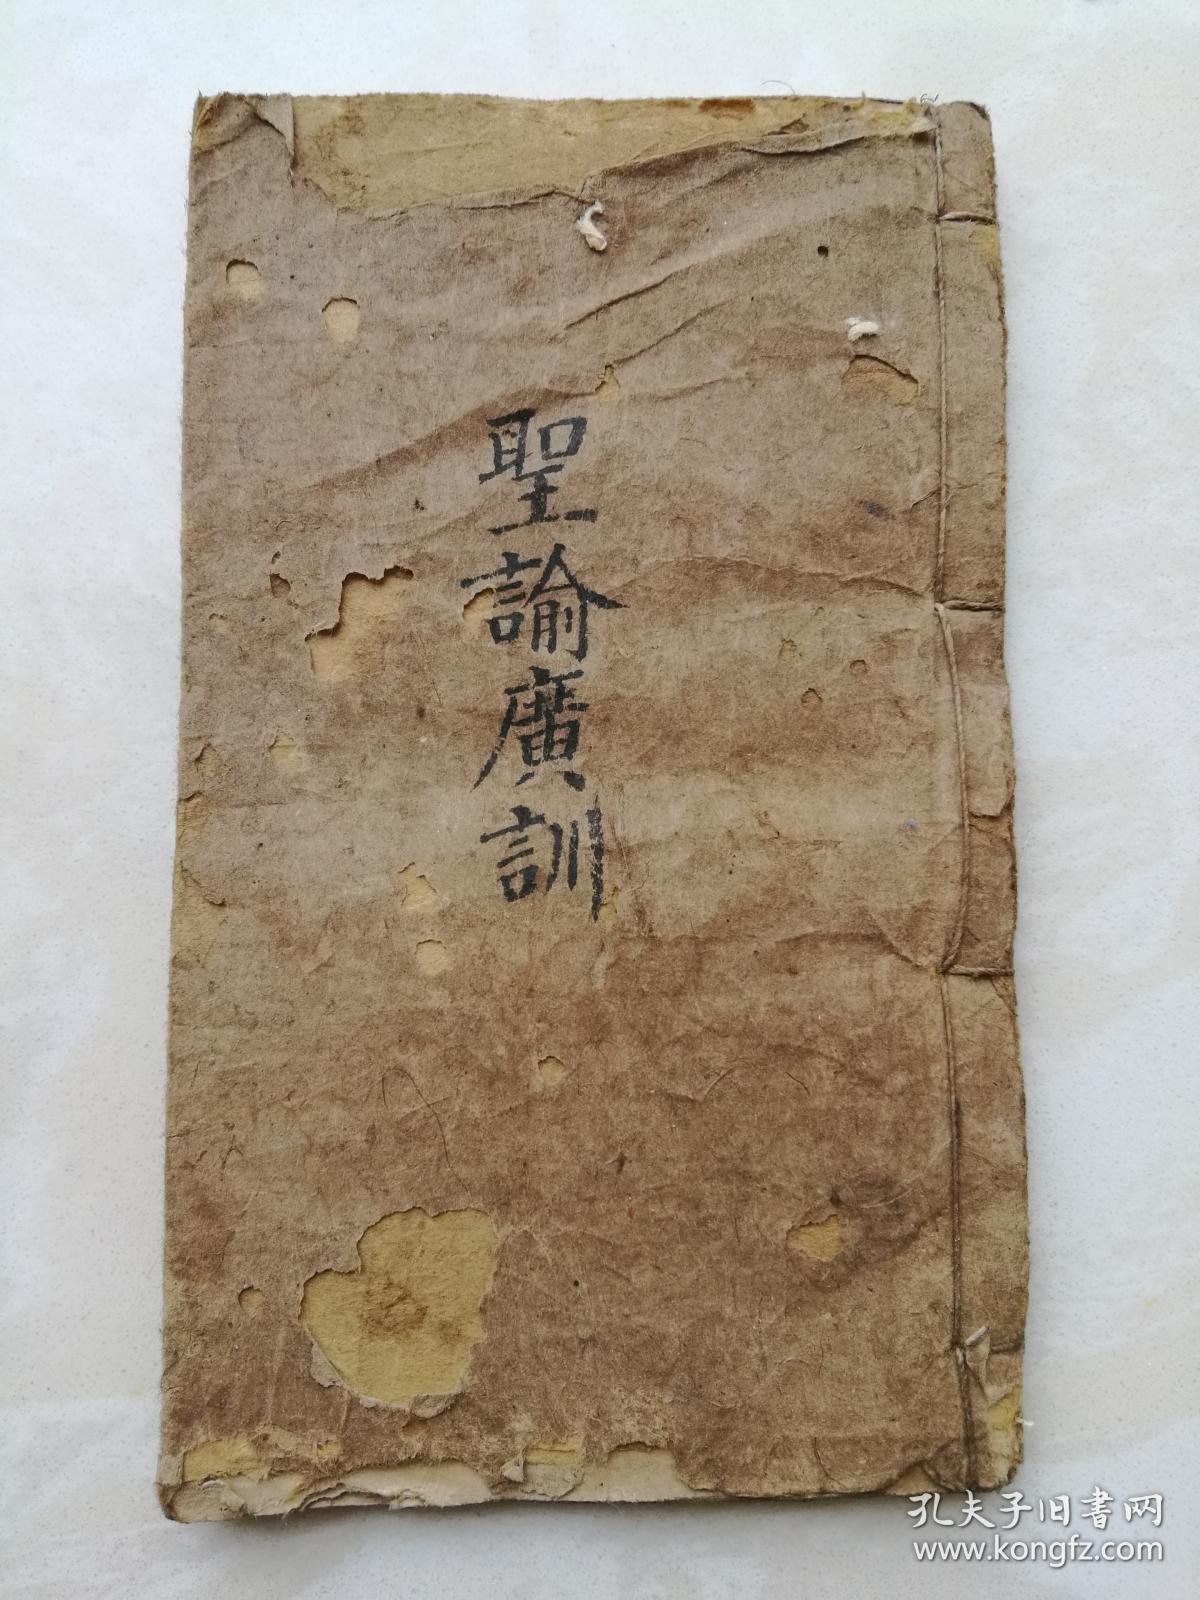 聖諭廣訓
孔夫子旧書网
www.kongfz.com